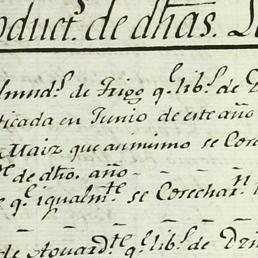 oduct.ˢ de dhãs.
lmud.ˢ de Trigo q.ᵉ lib.ˢ de D
ticada en Junio de este año
Maiz que asimismo se Core
de dho. año
q.ᵉ igualm.ᵗᵉ se Corechar.ⁿ
de Aguard.ᵗᵉ q.ᵉ lib.ˢ de Dzm